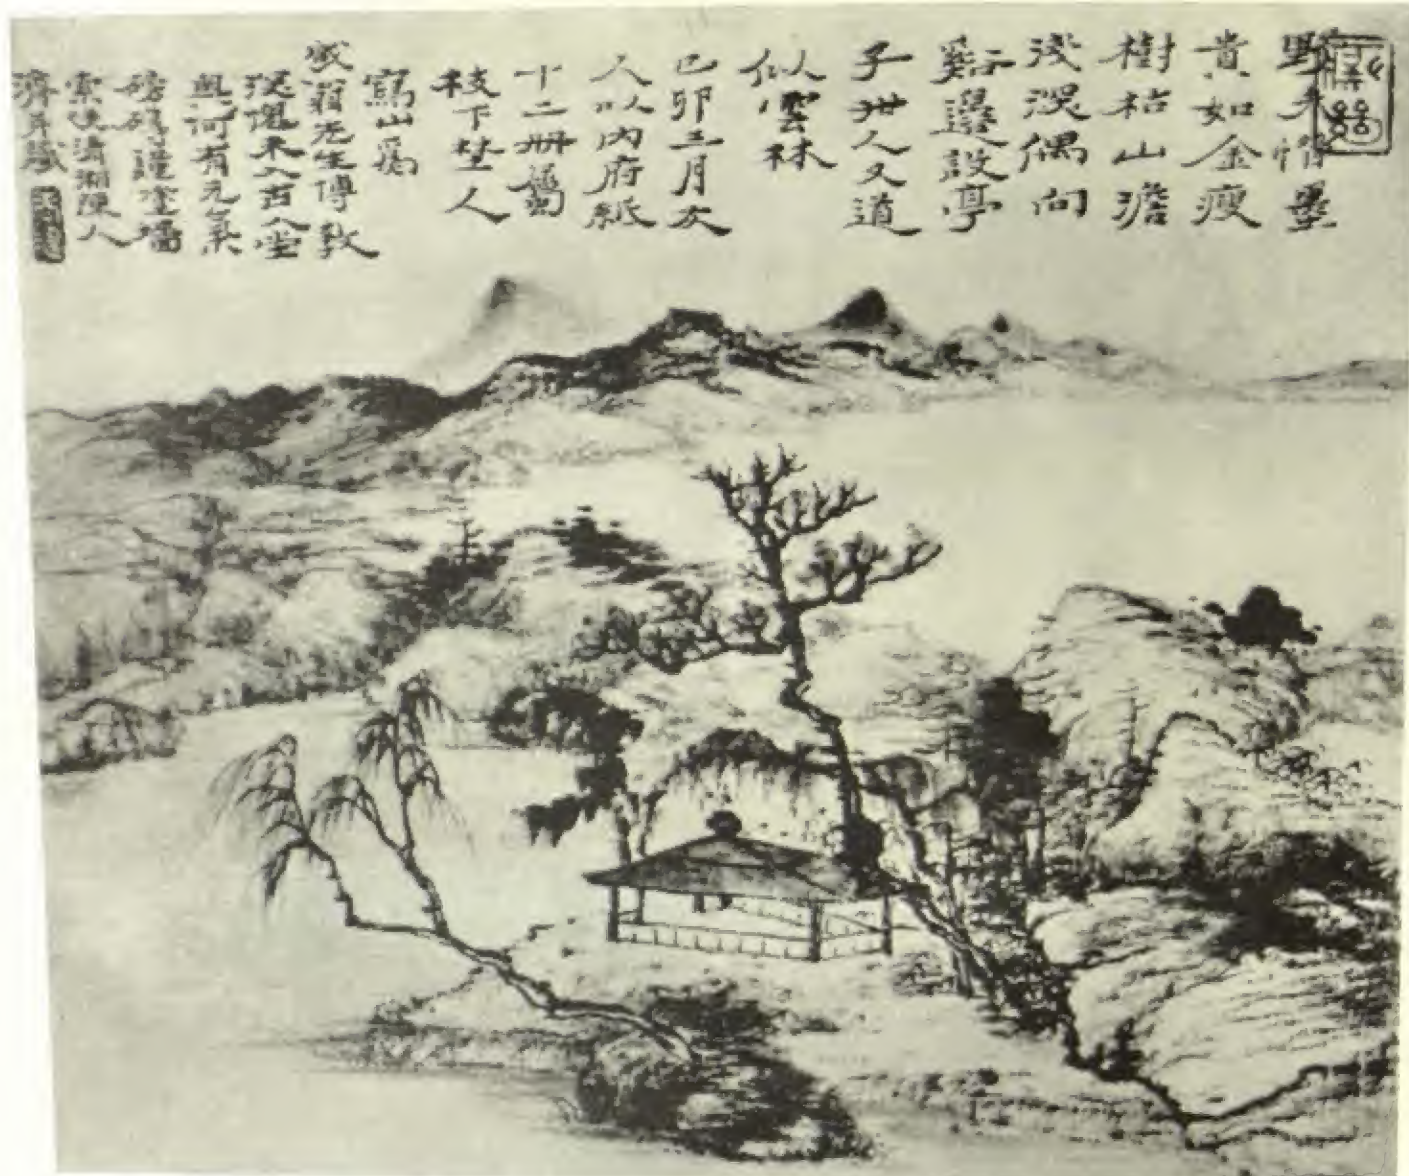 野夫惜墨
貴如金瘦
樹枯山澹
淺深偶向
谿邊設亭
子世人又道
似雲林
己卯三月友
人以內府紙
十二冊屬
枝下埜人
寫山爲
翁先生教
深愧未入古人室
奥何有元氣
磅礴謹塗墻
索笑清湘陳人
濟并識